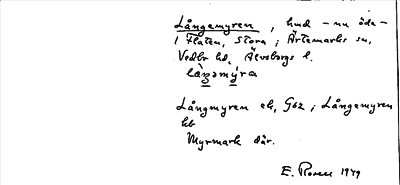 Långemyren, hmd – nu öde –
i Flaten, Stora; Ärtemarks sn,
Vedbo hd, Älvsborgs l.
laŋəmýra
Långmyren ek, G62; Långemyren
kb
Myrmark där.
E. Rosén 1949